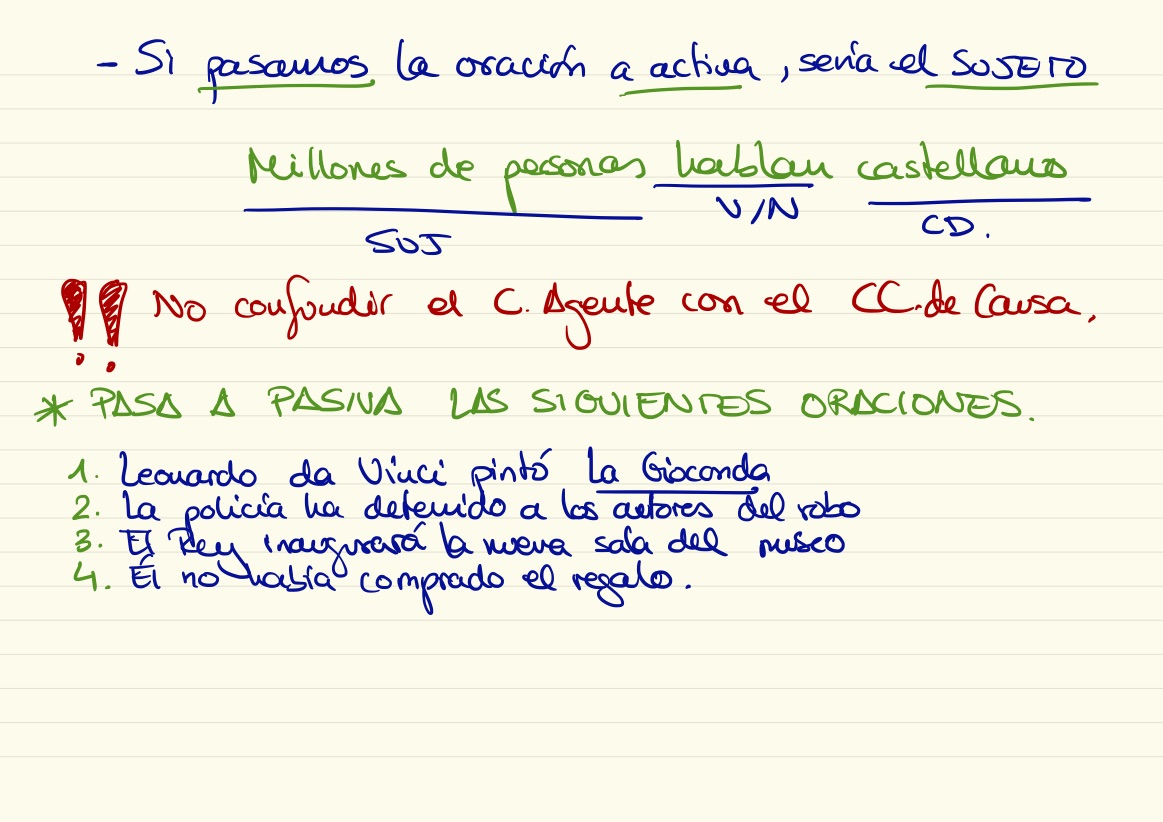 - Si pasamos la oración a activa, sería el SUJETO
Millones de personas hablan castellano
SUJ V/N CD.
!! No confundir el C. Agente con el CC. de Causa.
* PASA A PASIVA LAS SIGUIENTES ORACIONES.
1. Leonardo da Vinci pintó La Gioconda
2. La policía ha detenido a los autores del robo
3. El Rey inaugurará la nueva sala del museo
4. Él no había comprado el regalo.